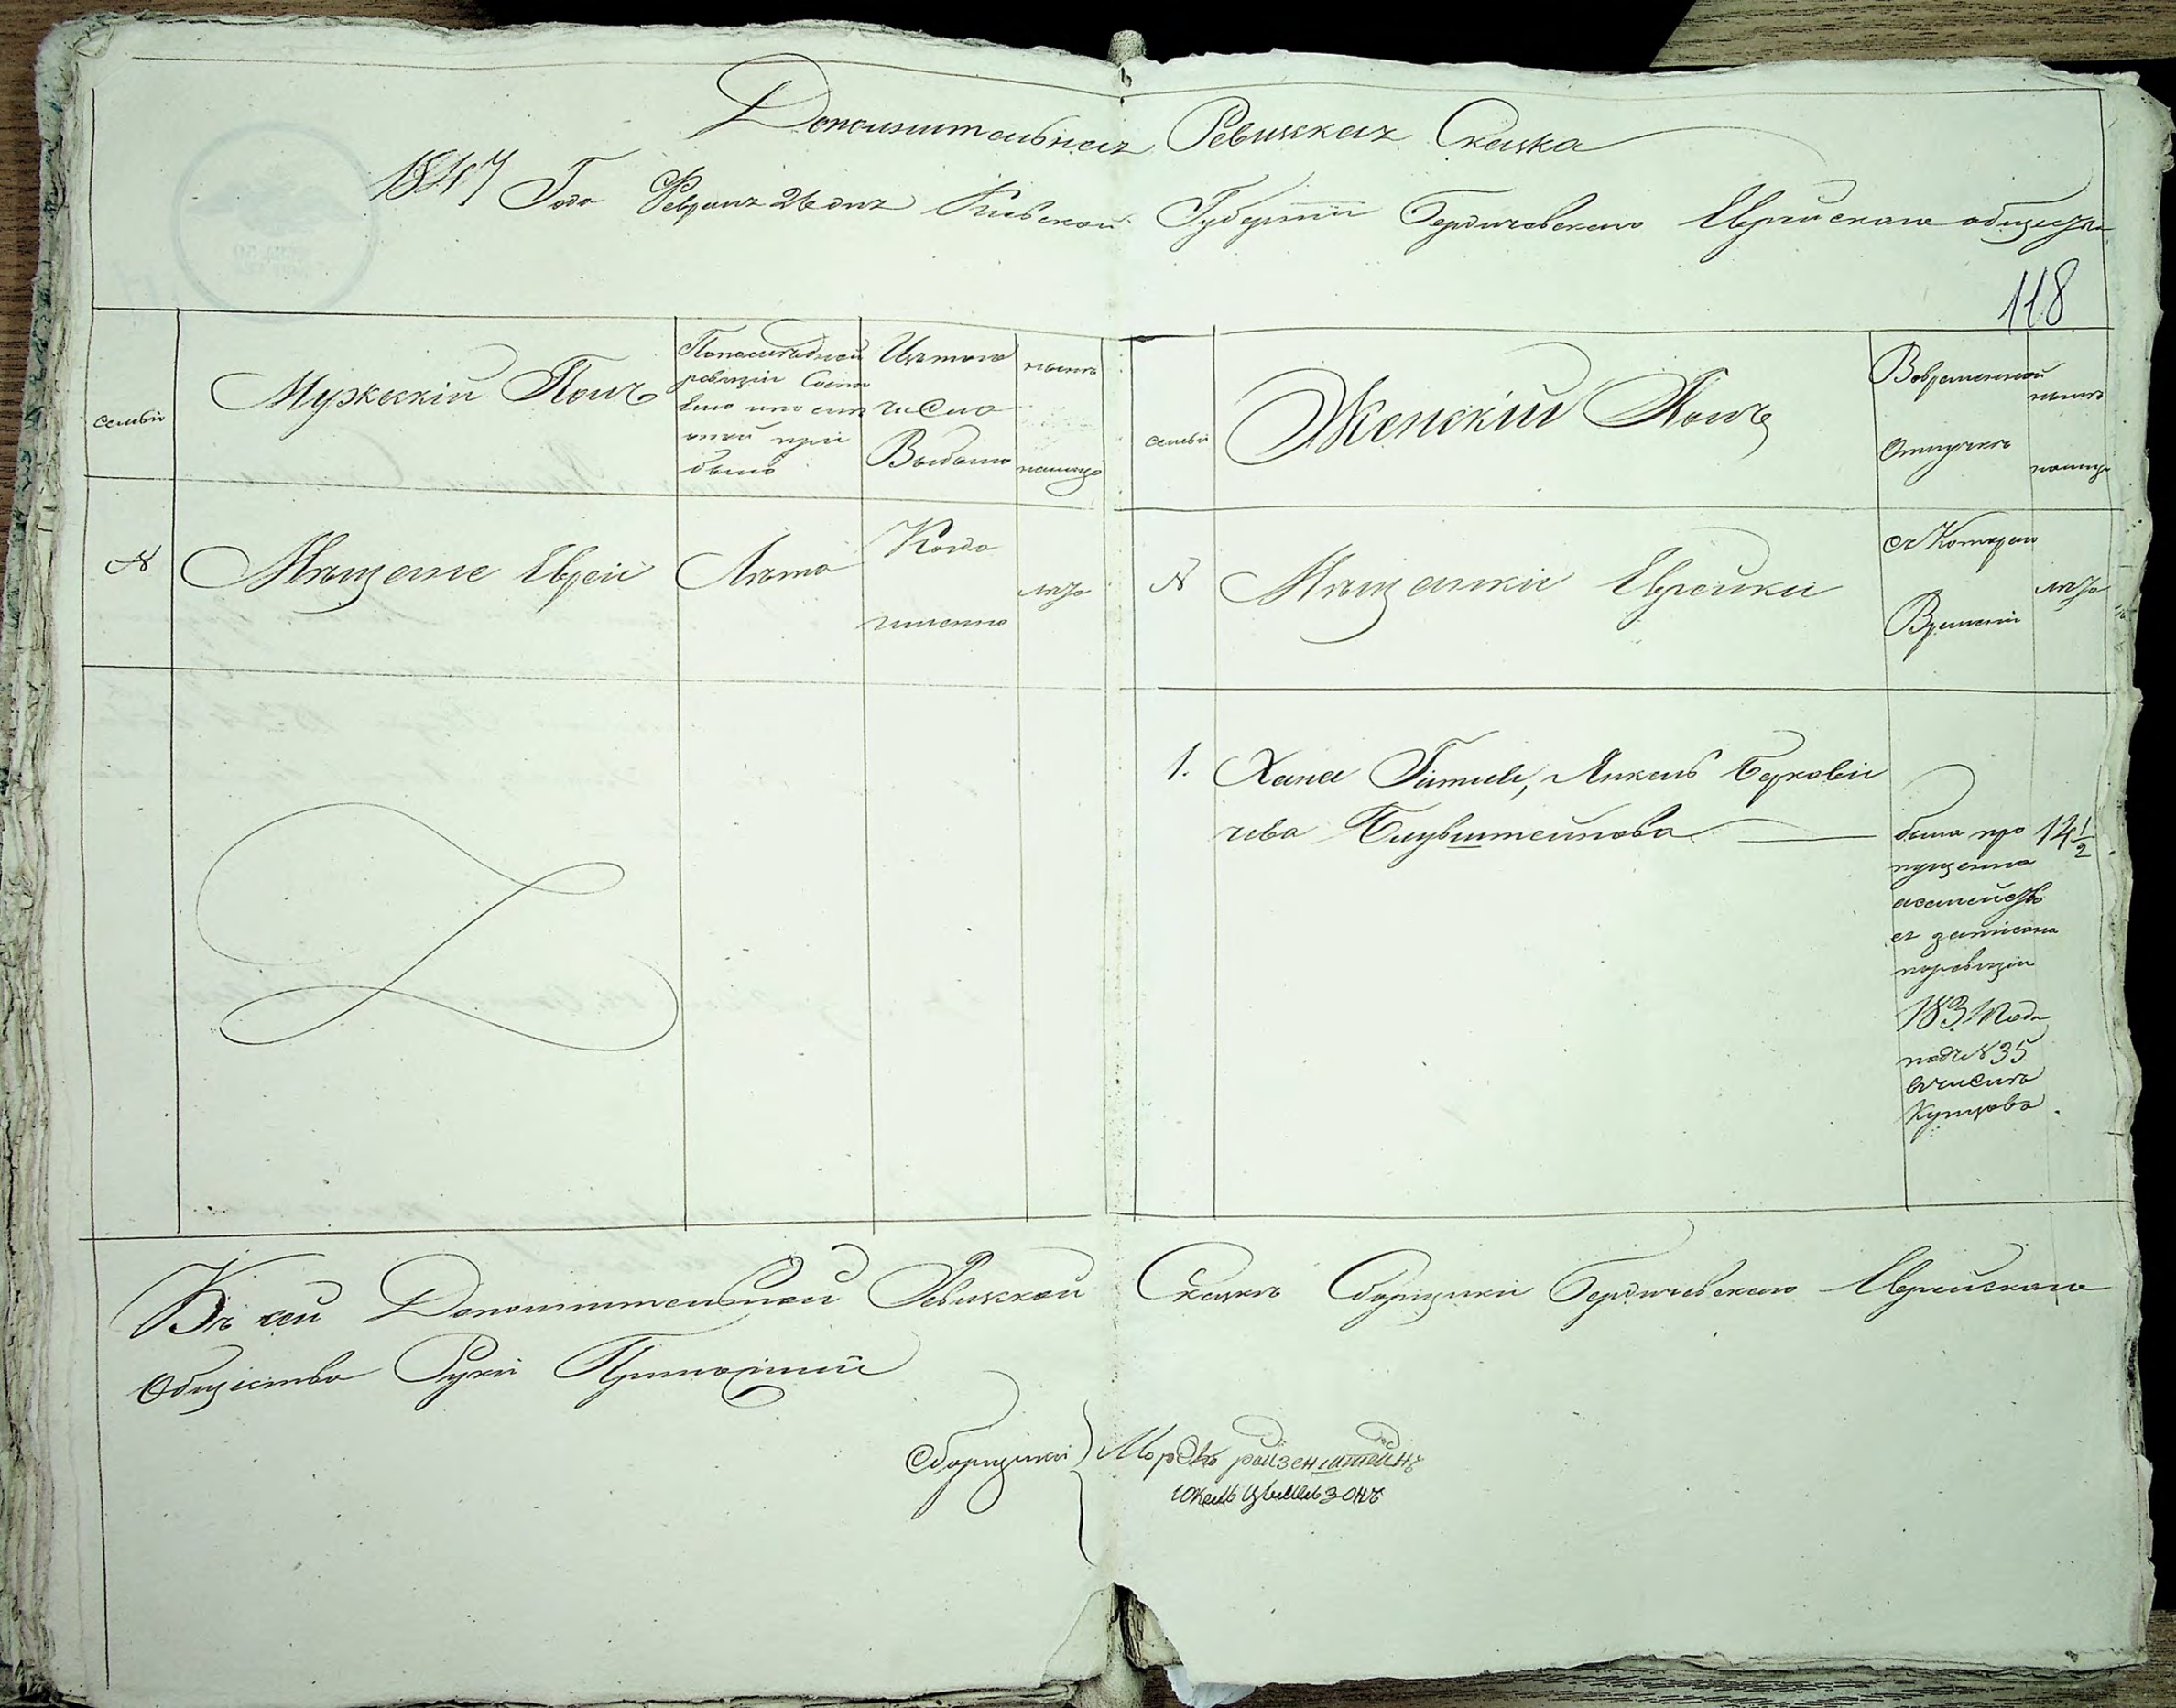 Дополнительная Ревизская Сказка
1847 Года Февраля 26 дня Киевской Губернии Бердичевского Еврейского общества
118
семьи
Мужескій Полъ
По последней ревизіи Состояло или после оной прибыло
Изъ того числа Выбыло
нынѣ налицо
семьи
Женскій Полъ
Во временной Отлучкѣ
нынѣ налицо
№
Мѣщане Евреи
Лѣта
Когда именно
лѣта
№
Мѣщанки Еврейки
съ Котораго Времени
лѣта
1. Хана Гитля, Янкель Беркови
чева Блувштейнова
была про
пущенна
а семейство
ея записана
по ревизіи
183 года
подъ № 35
въ числѣ
Купцовъ
14 1/2
Къ сей Дополнительной Ревизской Сказкѣ Сборщики Бердичевского Еврейского
Общества Руки Приложили
Сборщики
Мордко райзенштейнъ
Юкель зонъ